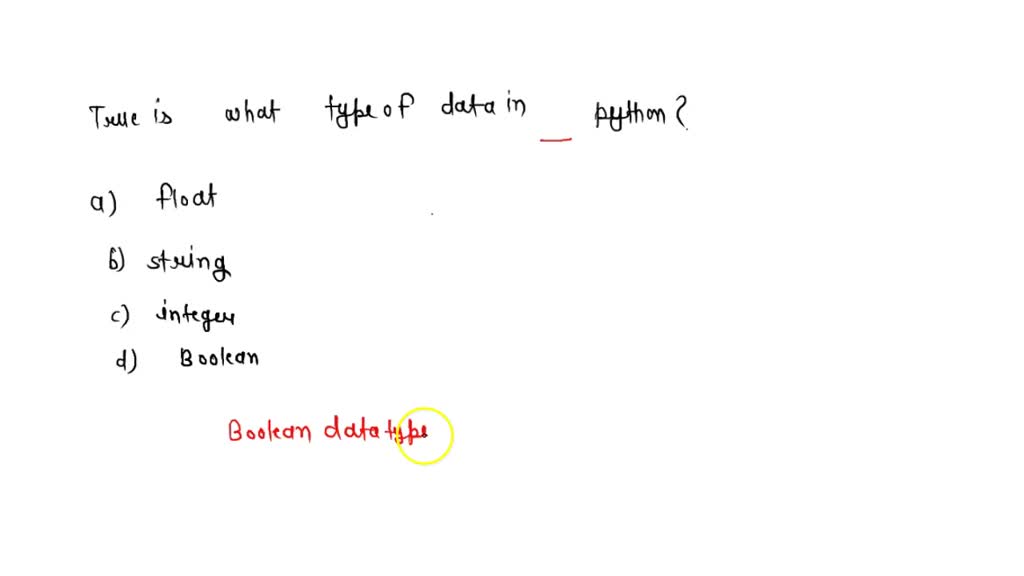 True is what type of data in _ python?
a) float
b) string
c) integer
d) Boolean
Boolean data type